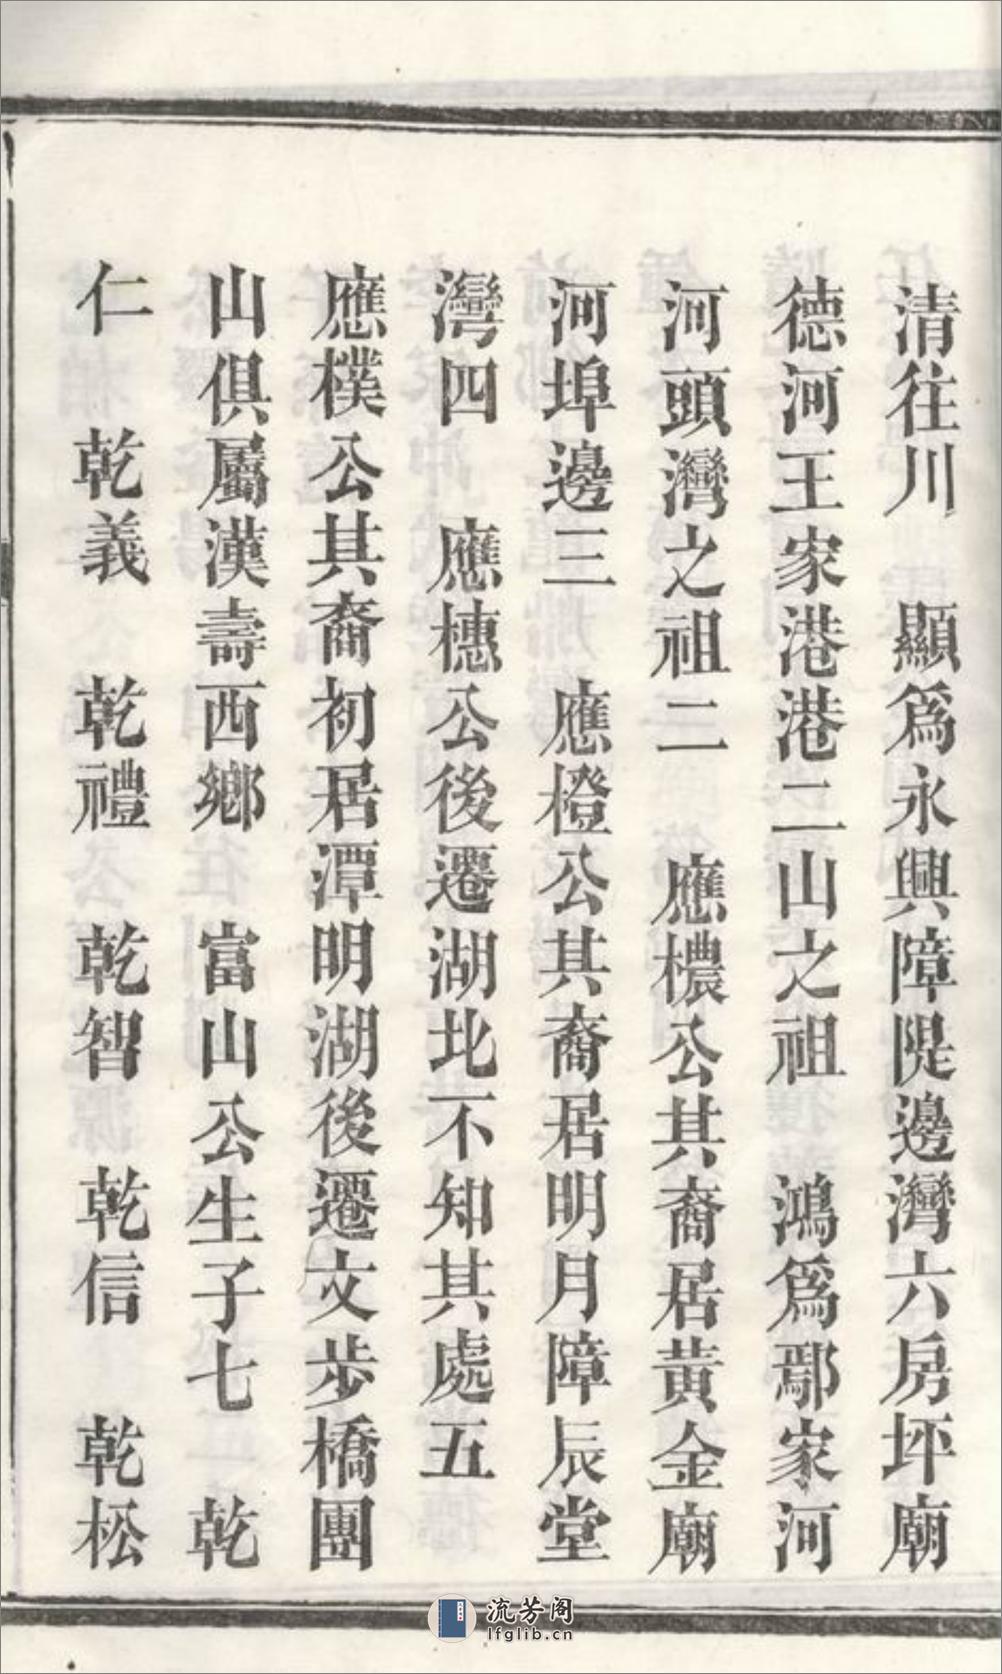 清往川　顯爲永興障隄邊灣六房坪廟
德河王家港港二山之祖　鴻爲鄢家河
河頭灣之祖二　應檂公其裔居黃金廟
河埠邊三　應橙公其裔居明月障辰堂
灣四　應橞公後遷湖北不知其處五
應樸公其裔初居潭明湖後遷文步橋團
山俱屬漢壽西鄉　富山公生子七　乾
仁　乾義　乾禮　乾智　乾信　乾松
流芳阁
lfglib.cn